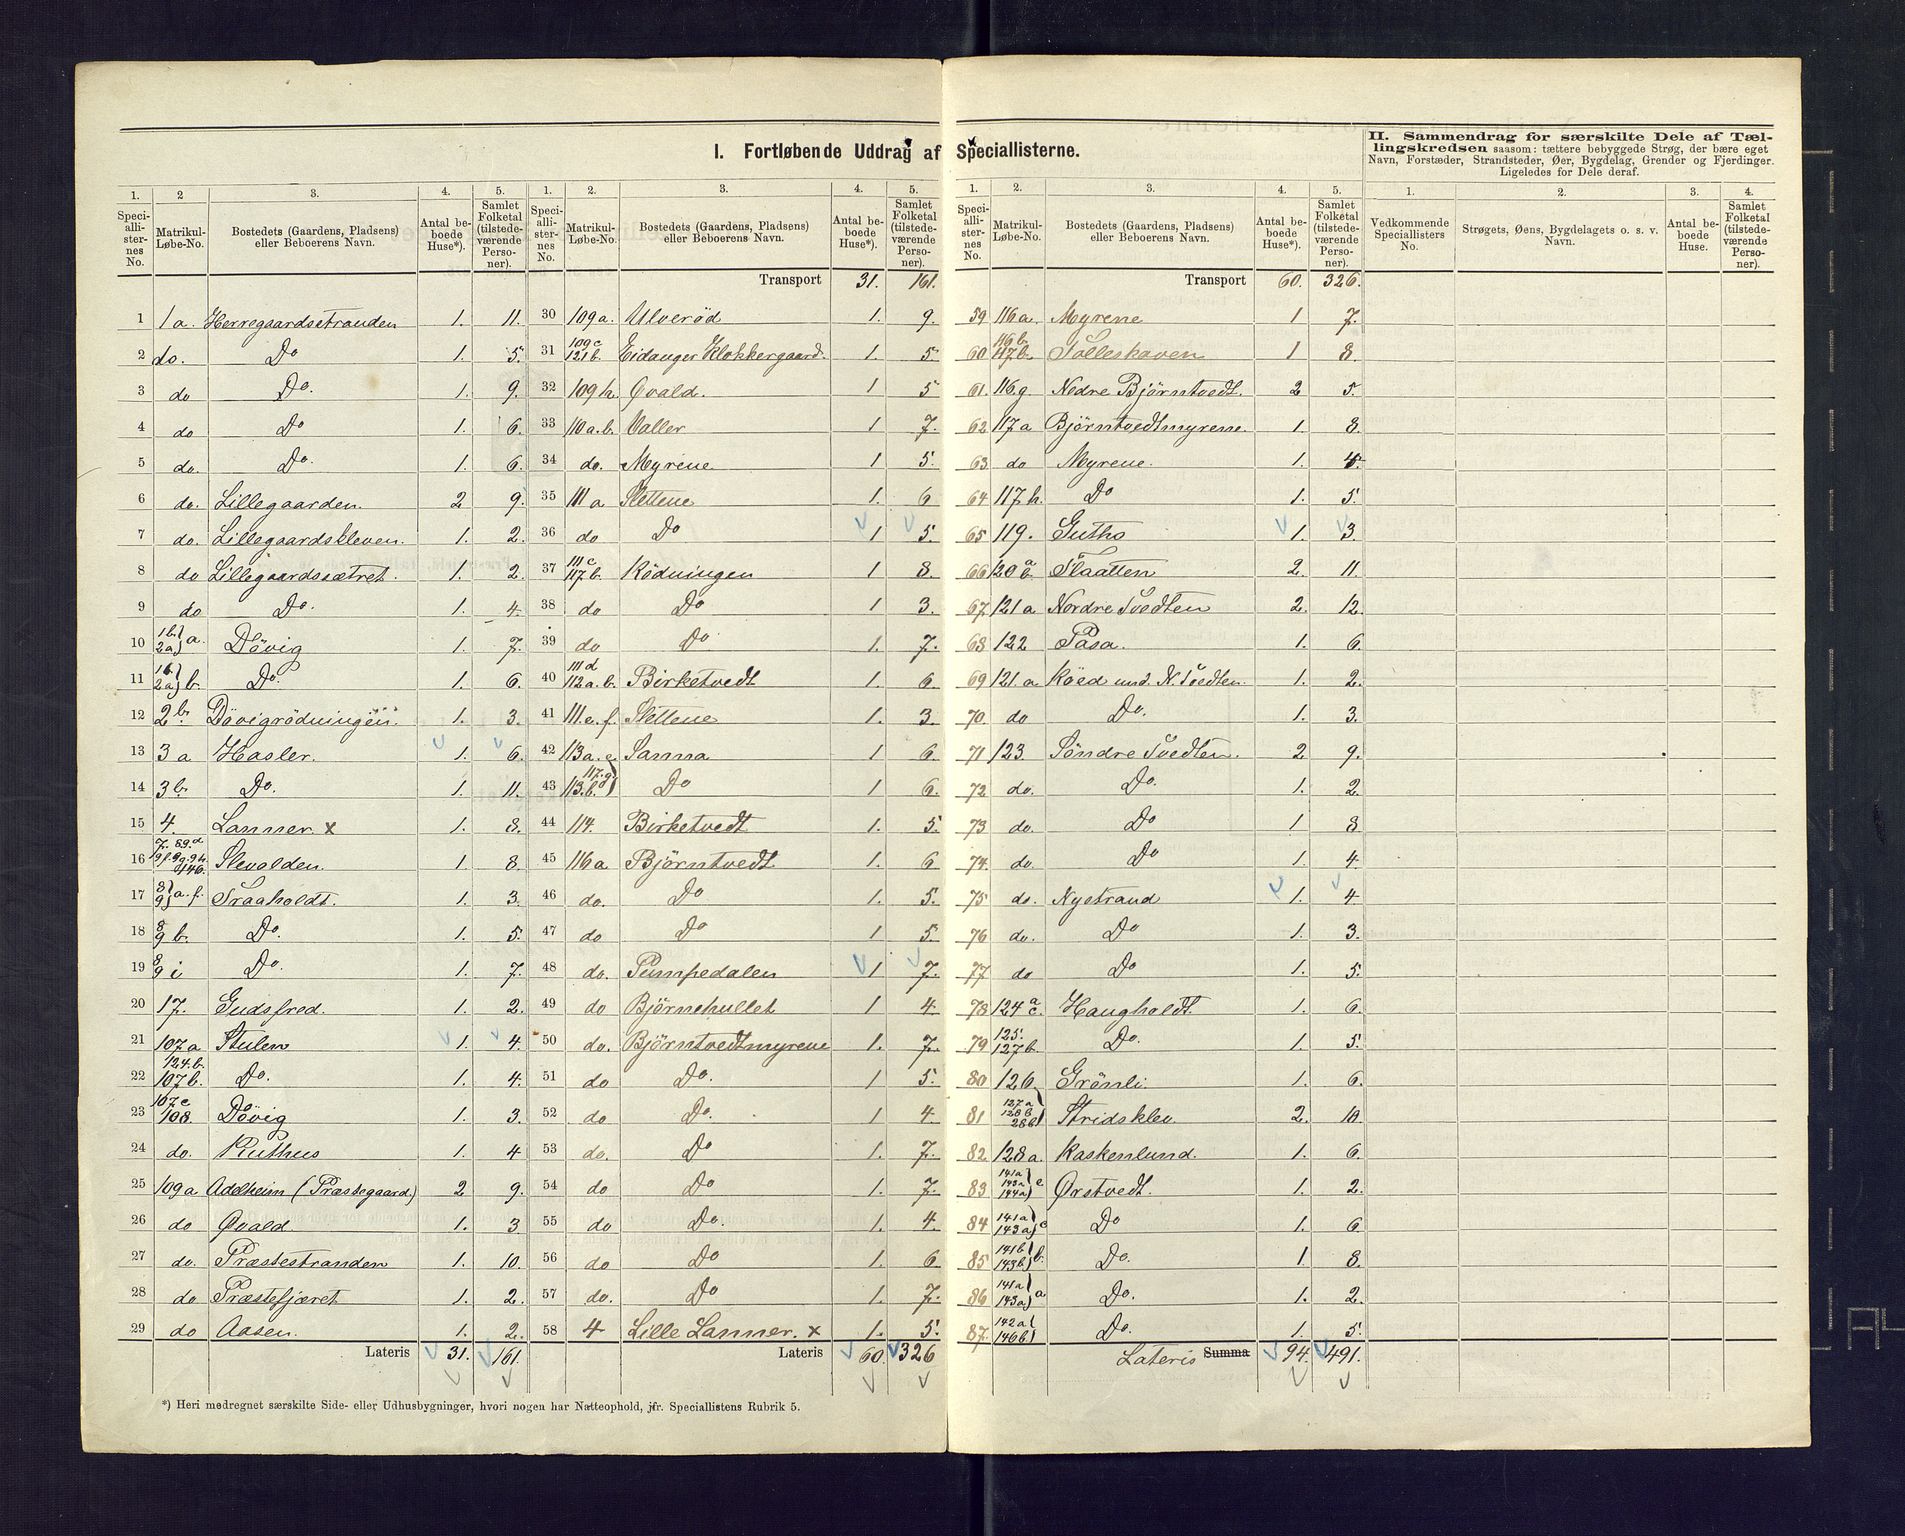 I. Fortløbende Uddrag af Speciallisterne.
II. Sammendrag for særskilte Dele af Tællingskredsen saasom: tættere bebyggede Strøg, der bære eget Navn, Forstæder, Strandsteder, Øer, Bygdelag, Grender og Fjerdinger. Ligeledes for Dele deraf.
1. 2 3. 4. 5.
Speciallisternes No. Matrikul-Løbe-No. Bostedets (Gaardens, Pladsens) eller Beboerens Navn. Antal beboede Huse*). Samlet Folketal (tilstedeværende Personer).
1 1a. Herregaardsstranden 1. 11.
2 do. Do 1. 5.
3 do Do. 1. 9.
4 do Do 1. 6.
5 do. Do. 1. 6.
6 do. Lillegaarden. 2 9.
7 do. Lillegaardskleven. 1. 2.
8 do Lillegaardssætret. 1. 2.
9 do Do. 1. 4.
10 1b 2a a. Dövig 1. 7.
11 1b 2a b. Do. 1. 6.
12 2b. Dövigrödningen. 1. 3.
13 3a Hasler. 1. 6.
14 3b. Do. 1. 11.
15 4. Lanner. x 1. 8.
16 Slevolden. 1. 8.
17 8 9 a.f. Traaholdt. 1. 3.
18 8 9 b. Do. 1. 5.
19 8 9 i Do. 1. 7.
20 17. Gudsfred. 1. 2.
21 107a Stulen 1. 4.
22 124.b. 107b. Do. 1. 4.
23 107c 108. Dövig 1. 3.
24 do. Ruthus 1. 4
25 109a Adelheim (Præstegaard.) 2 9.
26 do Qvald 1. 3
27 do. Præstestranden 1. 10.
28 do Præstefjæret 1. 2.
29 do Aasen. 1. 2.
Lateris 31. 161.
1. 2. 3. 4. 5.
Speciallisternes No. Matrikul-Løbe-No. Bostedets (Gaardens, Pladsens) eller Beboerens Navn. Antal beboede Huse*). Samlet Folketal (tilstedeværende Personer).
Transport 31. 161.
30 109a. Ulveröd 1. 9.
31 109c 121b. Eidanger Klokkergaard. 1. 5
32 109h. Qvald. 1 5
33 110a.b. Valler 1 7.
34 do. Myrene 1 5.
35 111a Slettene 1. 6
36 do Do 1 5.
37 111c 117b. Rödningen 1 8.
38 do Do 1 3.
39 do Do 1. 7.
40 111d 112a.b. Birketvedt 1. 6.
41 111.e.f. Slettene 1. 3.
42 113a.c. Sanna 1 6.
43 117.g 113.b.d Do 1 6.
44 114. Birketvedt 1. 5.
45 116a Björntvedt 1. 6
46 do. Do 1. 5.
47 do Do 1 5.
48 do. Pumpedalen 1 7.
49 do Björnehullet 1 4.
50 do. Björntvedtmyrene 1. 7.
51 do Do. 1 5.
52 do Do. 1 4.
53 do. Do 1. 7.
54 do Do 1. 7.
55 do Do. 1. 4.
56 do Do 1. 6
57 do. Do 1. 7.
58 4 Lille Lanner. x 1. 5.
Lateris 60. 326
1. 2. 3. 4. 5.
Speciallisternes No. Matrikul-Løbe-No. Bostedets (Gaardens, Pladsens) eller Beboerens Navn. Antal beboede Huse*). Samlet Folketal (tilstedeværende Personer).
Transport 60. 326.
59 116a. Myrene 1 7.
60 116b 117b. Tolleskoven 1 8
61. 116g. Nedre Björntvedt. 2 5.
62 117a Björntvedtmyrene 1. 8.
63 do Myrene. 1. 5.
64 117h. Do 1. 5.
65 119. Gutho 1. 3
66 120 a b. Flaatten 2. 11.
67. 121a Nordre Tvedten 2. 12.
68 122 Pasa. 1. 6
69 121.a Röed und. N. Tvedten. 1. 2.
70. do Do. 1. 3.
71 123. Söndre Tvedten. 2 9.
72 do. Do. 1. 2
73 do. Do 1 8
74. do. Do 1. 4.
75 do. Nystrand 1. 4
76 do. Do 1. 3.
77 do Do 1. 5
78 124 a c. Haugholdt 1. 6
79 125. 127b. Do. 1. 5.
80 126 Grönli. 1. 6.
81 127a 128b 28b Stridsklev. 2. 10.
82 128a. Kaskenlund. 1. 6.
83 141a 143a 144a e Ørstvedt. 1. 2.
84 141a 143a c Do 1. 6
85 141b 143b b. Do. 1 8
86 141a 143a a Do. 1. 2.
87. 142a 146b Do. 1. 5
Lateris Summa 94. 491.
1. 2. 3. 4.
Vedkommende Speciallisters No. Strøgets, Øens, Bygdelagets o. s. v. Navn. Antal beboede Huse. Samlet Folketal (tilstedeværende Personer).
*) Heri medregnet særskilte Side- eller Udhusbygninger, hvori nogen har Natteophold, jfr. Speciallistens Rubrik 5.